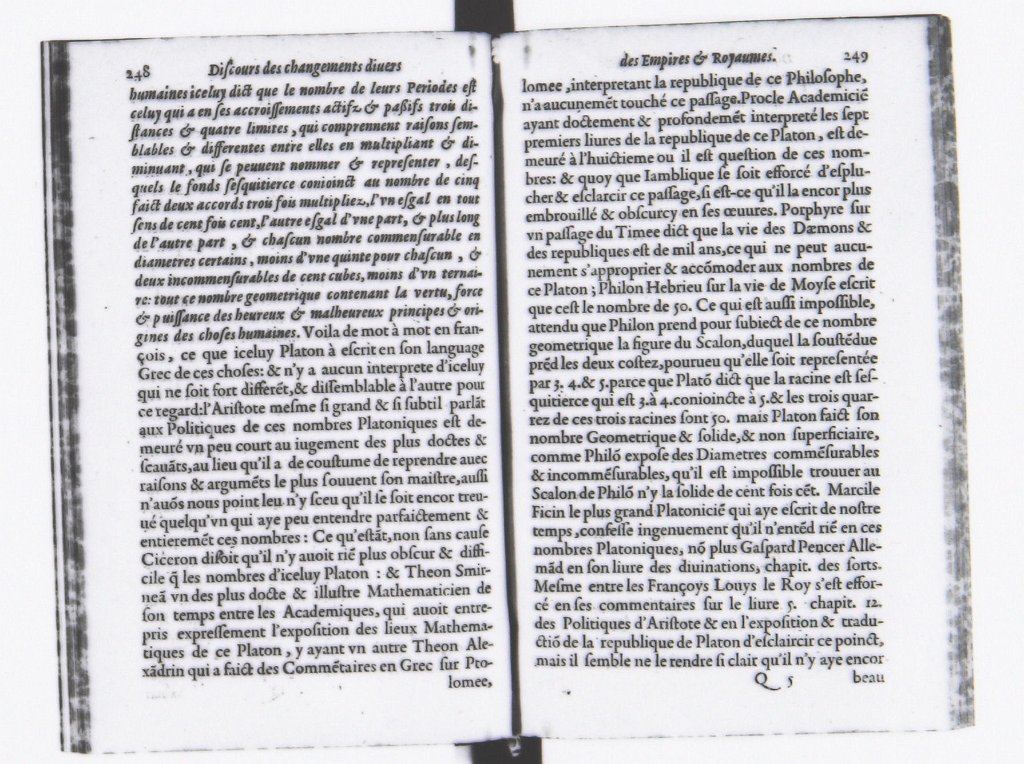 248 Discours des changements diuers
humaines iceluy dict que le nombre de leurs Periodes est
celuy qui a en ses accroissements actifz & passifs trois di-
stances & quatre limites, qui comprennent raisons sem-
blables & differentes entre elles en multipliant & di-
minuant, qui se peuuent nommer & representer, des-
quels le fonds sesquitierce conioinct au nombre de cinq
faict deux accords trois fois multipliez, l'vn esgal en tout
sens de cent fois cent, l'autre esgal d'vne part, & plus long
de l'autre part, & chascun nombre commensurable en
diametres certains, moins d'vne quinte pour chascun, &
deux incommensurables de cent cubes, moins d'vn ternai-
re: tout ce nombre geometrique contenant la vertu, force
& puissance des heureux & malheureux principes & ori-
gines des choses humaines. Voila de mot à mot en fran-
çois, ce que iceluy Platon à escrit en son language
Grec de ces choses: & n'y a aucun interprete d'iceluy
qui ne soit fort differēt, & dissemblable à l'autre pour
ce regard: l'Aristote mesme si grand & si subtil parlāt
aux Politiques de ces nombres Platoniques est de-
meuré vn peu court au iugement des plus doctes &
scauāts, au lieu qu'il a de coustume de reprendre auec
raisons & argumēts le plus souuent son maistre, aussi
n'auōs nous point leu n'y sceu qu'il se soit encor treu-
ué quelqu'vn qui aye peu entendre parfaictement &
entieremēt ces nombres: Ce qu'estāt, non sans cause
Ciceron disoit qu'il n'y auoit riē plus obscur & diffi-
cile q̄ les nombres d'iceluy Platon : & Theon Smir-
neā vn des plus docte & illustre Mathematicien de
son temps entre les Academiques, qui auoit entre-
pris expressement l'exposition des lieux Mathema-
tiques de ce Platon, y ayant vn autre Theon Ale-
xādrin qui a faict des Commētaires en Grec sur Pto-
lomee,
des Empires & Royaumes. 249
lomee, interpretant la republique de ce Philosophe,
n'a aucunemēt touché ce passage. Procle Academiciē
ayant doctement & profondemēt interpreté les sept
premiers liures de la republique de ce Platon, est de-
meuré à l'huictieme ou il est question de ces nom-
bres: & quoy que Iamblique se soit efforcé d'esplu-
cher & esclarcir ce passage, si est-ce qu'il la encor plus
embrouillé & obscurcy en ses œuures. Porphyre sur
vn passage du Timee dict que la vie des Dæmons &
des republiques est de mil ans, ce qui ne peut aucu-
nement s'approprier & accōmoder aux nombres de
ce Platon ; Philon Hebrieu sur la vie de Moyse escrit
que cest le nombre de 50. Ce qui est aussi impossible,
attendu que Philon prend pour subiect de ce nombre
geometrique la figure du Scalon, duquel la soustēdue
prēd les deux costez, pourueu qu'elle soit representée
par 3. 4. & 5. parce que Platō dict que la racine est ses-
quitierce qui est 3. à 4. conioincte à 5. & les trois quar-
rez de ces trois racines sont 50. mais Platon faict son
nombre Geometrique & solide, & non superficiaire,
comme Philō expose des Diametres commēsurables
& incommēsurables, qu'il est impossible trouuer au
Scalon de Philō n'y la solide de cent fois cēt. Marcile
Ficin le plus grand Platoniciē qui aye escrit de nostre
temps, confesse ingenuement qu'il n'entēd riē en ces
nombres Platoniques, nō plus Gaspard Pencer Alle-
mād en son liure des diuinations, chapit. des sorts.
Mesme entre les Françoys Louys le Roy s'est effor-
cé en ses commentaires sur le liure 5. chapit. 12.
des Politiques d'Aristote & en l'exposition & tradu-
ctiō de la republique de Platon d'esclaircir ce poinct,
mais il semble ne le rendre si clair qu'il n'y aye encor
Q 5 beau